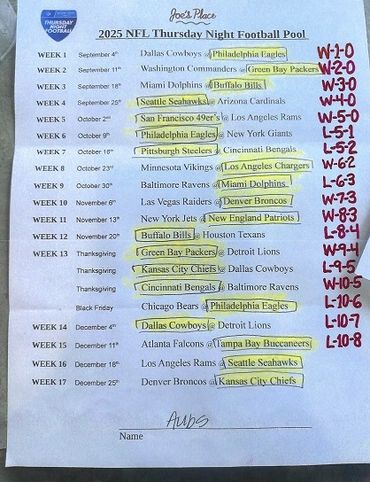 THURSDAY NIGHT FOOTBALL
Joe's Place
2025 NFL Thursday Night Football Pool
WEEK 1 September 4th Dallas Cowboys @ Philadelphia Eagles W-1-0
WEEK 2 September 11th Washington Commanders @ Green Bay Packers W-2-0
WEEK 3 September 18th Miami Dolphins @ Buffalo Bills W-3-0
WEEK 4 September 25th Seattle Seahawks @ Arizona Cardinals W-4-0
WEEK 5 October 2nd San Francisco 49er's @ Los Angeles Rams W-5-0
WEEK 6 October 9th Philadelphia Eagles @ New York Giants L-5-1
WEEK 7 October 16th Pittsburgh Steelers @ Cincinnati Bengals L-5-2
WEEK 8 October 23rd Minnesota Vikings @ Los Angeles Chargers W-6-2
WEEK 9 October 30th Baltimore Ravens @ Miami Dolphins L-6-3
WEEK 10 November 6th Las Vegas Raiders @ Denver Broncos W-7-3
WEEK 11 November 13th New York Jets @ New England Patriots W-8-3
WEEK 12 November 20th Buffalo Bills @ Houston Texans L-8-4
WEEK 13 Thanksgiving Green Bay Packers @ Detroit Lions W-9-4
Thanksgiving Kansas City Chiefs @ Dallas Cowboys L-9-5
Thanksgiving Cincinnati Bengals @ Baltimore Ravens W-10-5
Black Friday Chicago Bears @ Philadelphia Eagles L-10-6
WEEK 14 December 4th Dallas Cowboys @ Detroit Lions L-10-7
WEEK 15 December 11th Atlanta Falcons @ Tampa Bay Buccaneers L-10-8
WEEK 16 December 18th Los Angeles Rams @ Seattle Seahawks
WEEK 17 December 25th Denver Broncos @ Kansas City Chiefs
Name